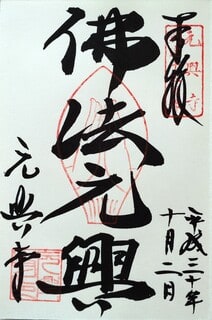 奉拝
元興寺
佛法元興
元興寺
平成三十年
十月二日